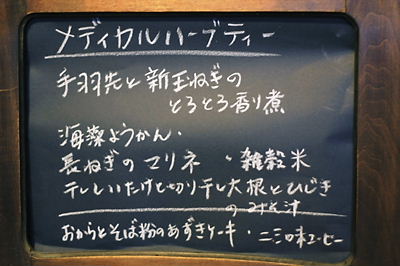 メディカルハーブティー
手羽先と新玉ねぎの
とろとろ香り煮
海藻ようかん・
長ねぎのマリネ ・雑穀米
干ししいたけと切り干し大根とひじき
のみそ汁
おからとそば粉のあずきケーキ・二三味コーヒー